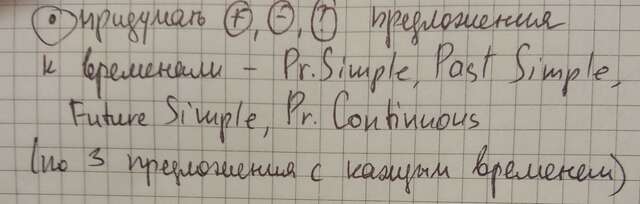 придумать +, -, ? предложения
к временам – Pr. Simple, Past Simple,
Future Simple, Pr. Continuous
(по 3 предложения с каждым временем)